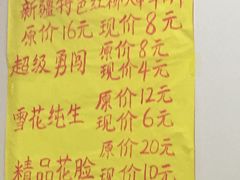 新疆特色红柳大串
原价16元 现价8元
超级勇闯 原价8元
现价4元
雪花纯生 原价12元
现价6元
精品花脸 原价20元
现价10元